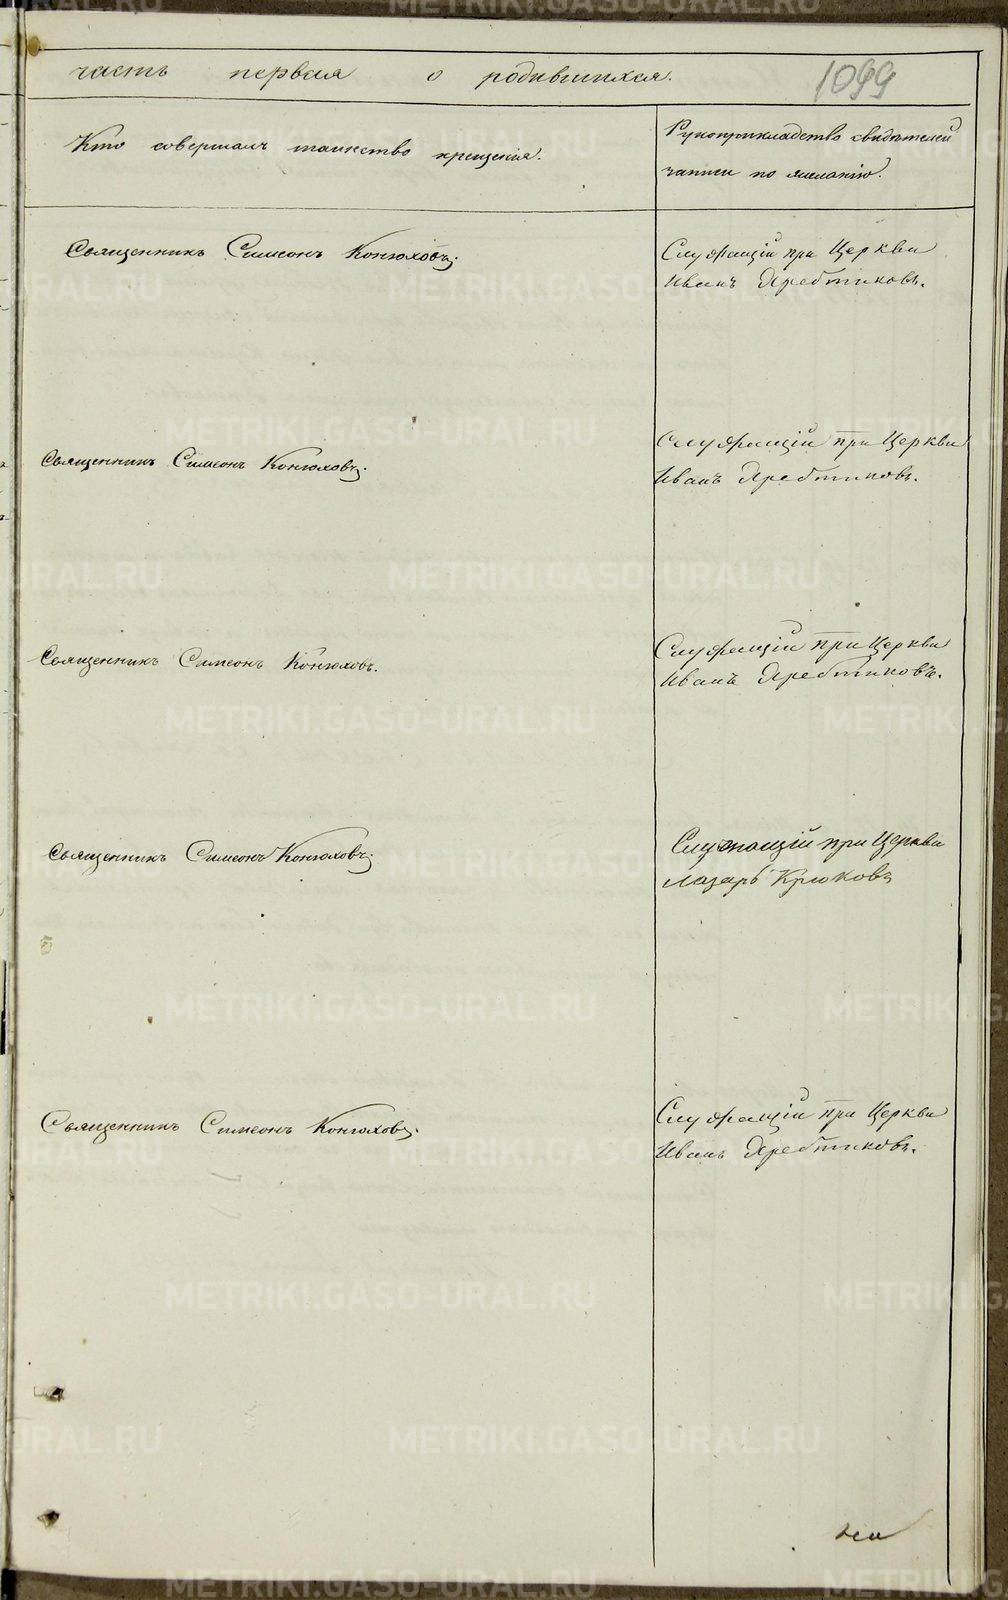 часть первая о родившихся.
1099
Кто совершалъ таинство крещенія.
Рукоприкладство свидѣтелей
записи по желанію.
Священникъ Симеонъ Конюховъ.
Служащій при Церкви
Иванъ Яребтиковъ.
Священникъ Симеонъ Конюховъ.
Служащій при Церкви
Иванъ Яребтиковъ.
Священникъ Симеонъ Конюховъ.
Служащій при Церкви
Иванъ Яребтиковъ.
Священникъ Симеонъ Конюховъ.
Служащій при Церкви
Лазарь Крюковъ
Священникъ Симеонъ Конюховъ.
Служащій при Церкви
Иванъ Яребтиковъ.
METRIKI.GASO-URAL.RU